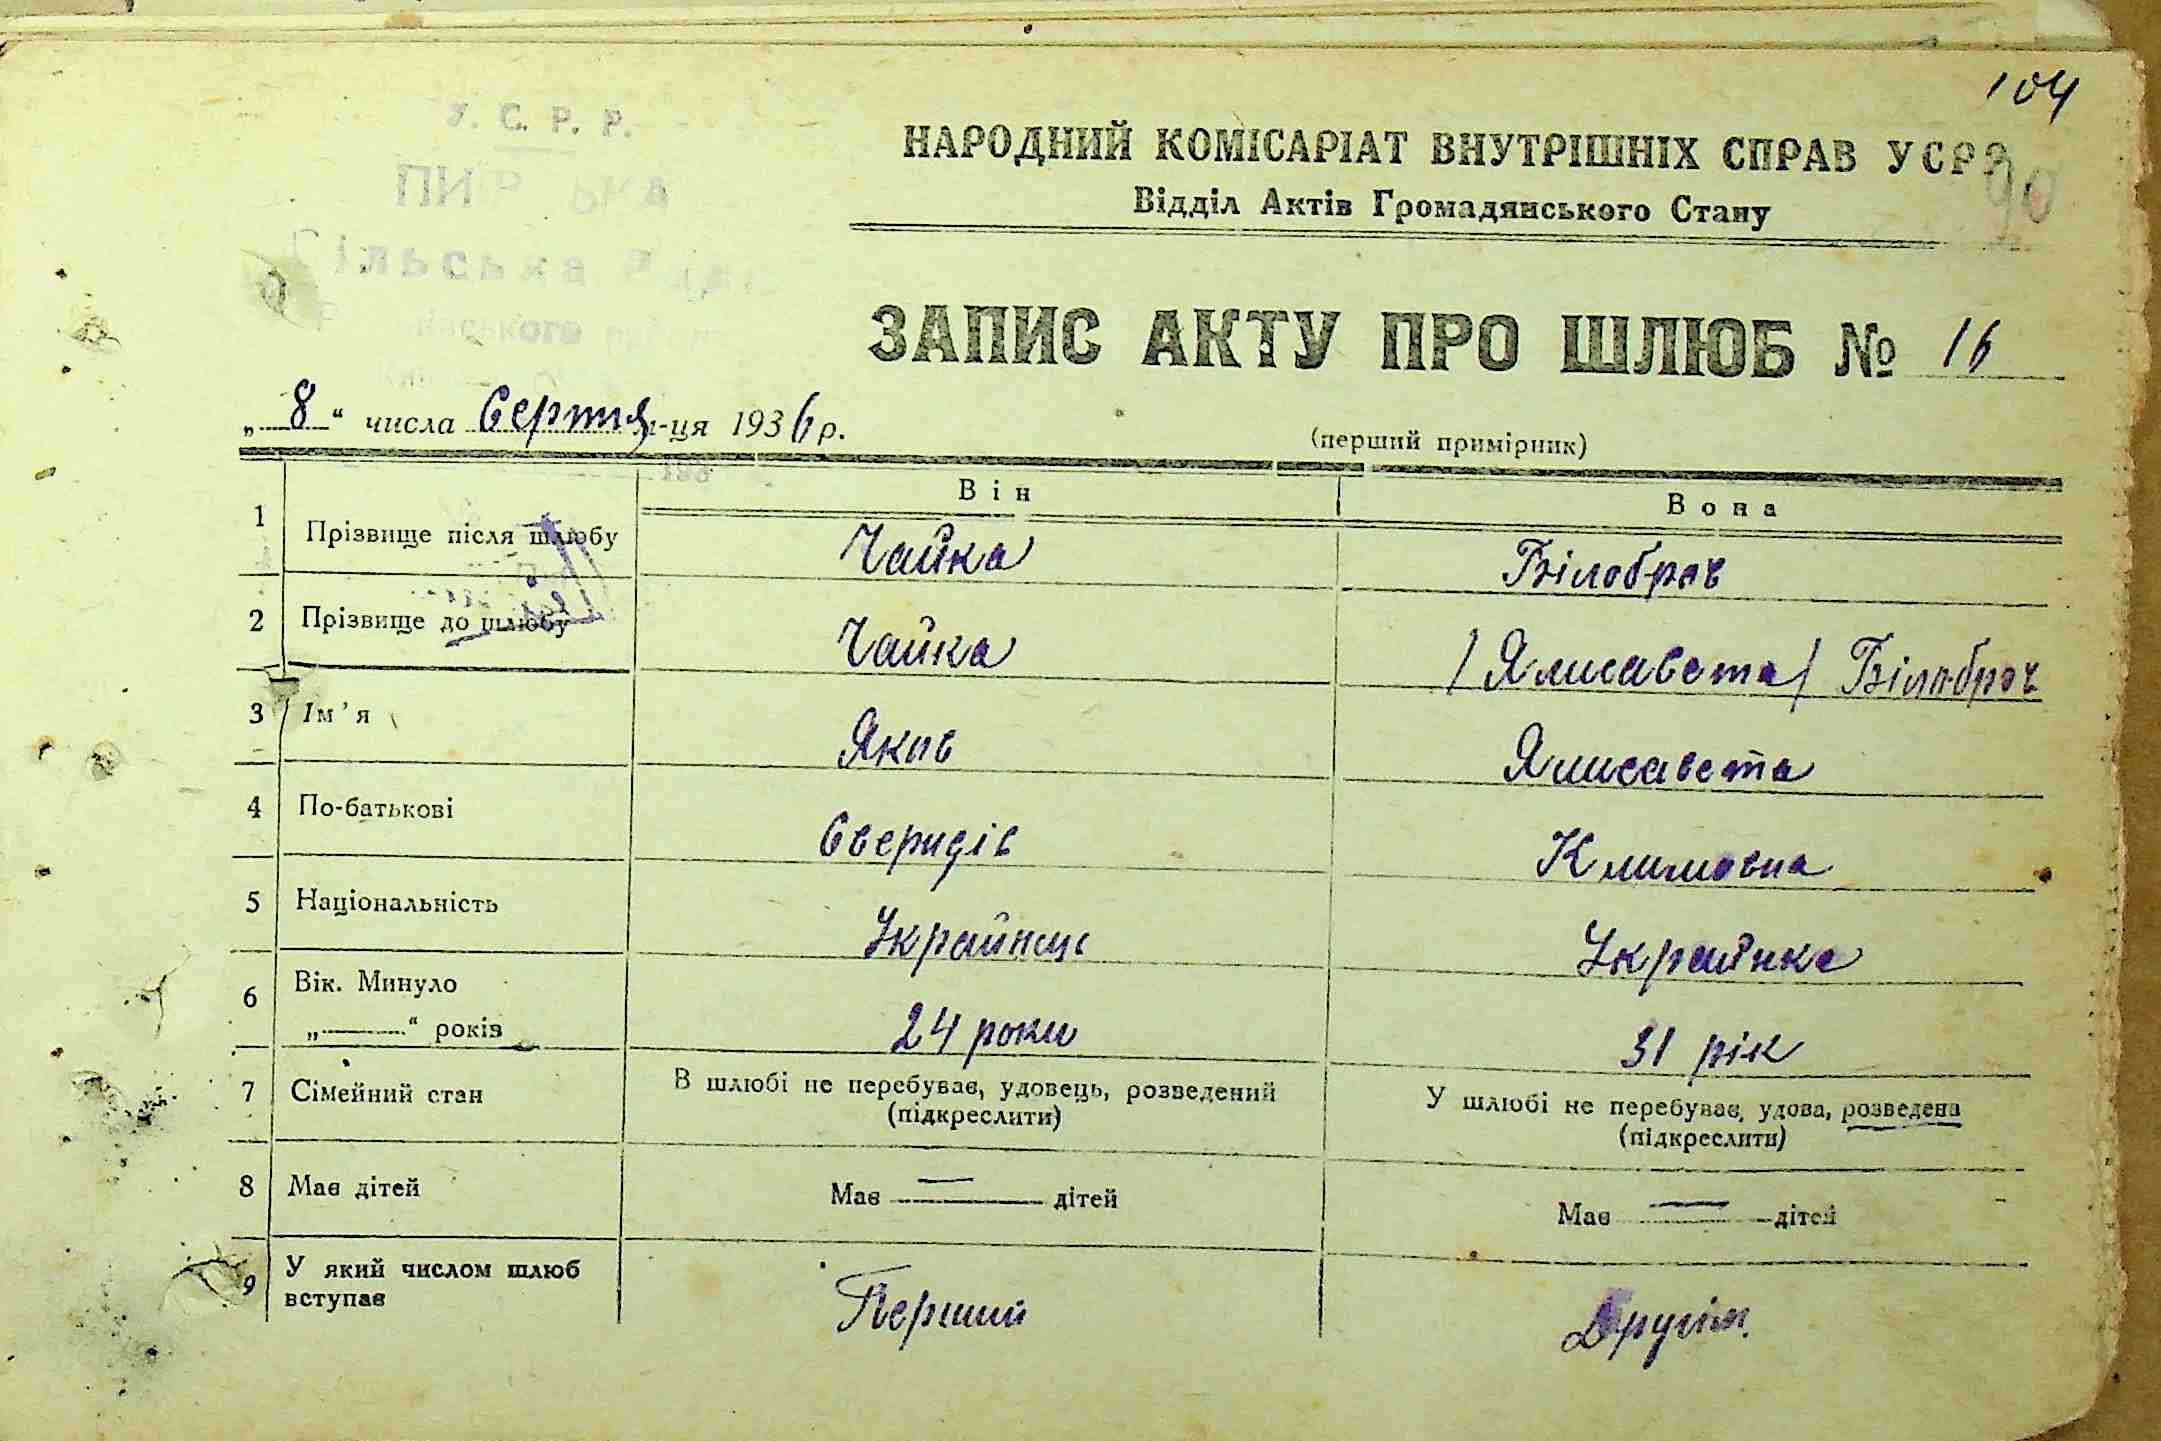 104
У. С. Р. Р.
НАРОДНИЙ КОМІСАРІАТ ВНУТРІШНІХ СПРАВ УСРР
90
Відділ Актів Громадянського Стану
Сільська Рада
ЗАПИС АКТУ ПРО ШЛЮБ № 16
„ 8 “ числа Серпня м-ця 1936 р.
(перший примірник)
Він Вона
1 Прізвище після шлюбу Чайка Білобров
2 Прізвище до шлюбу Чайка / Ялисавета / Білоброч
3 Ім’я Яков Ялисавета
4 По-батькові Сверидів Климовна
5 Національність Українець Українка
6 Вік. Минуло „——“ років 24 роки 31 рік
7 Сімейний стан В шлюбі не перебував, удовець, розведений (підкреслити) У шлюбі не перебуває, удова, розведена (підкреслити)
8 Має дітей Має — дітей Має — дітей
9 У який числом шлюб вступає Перший Другім